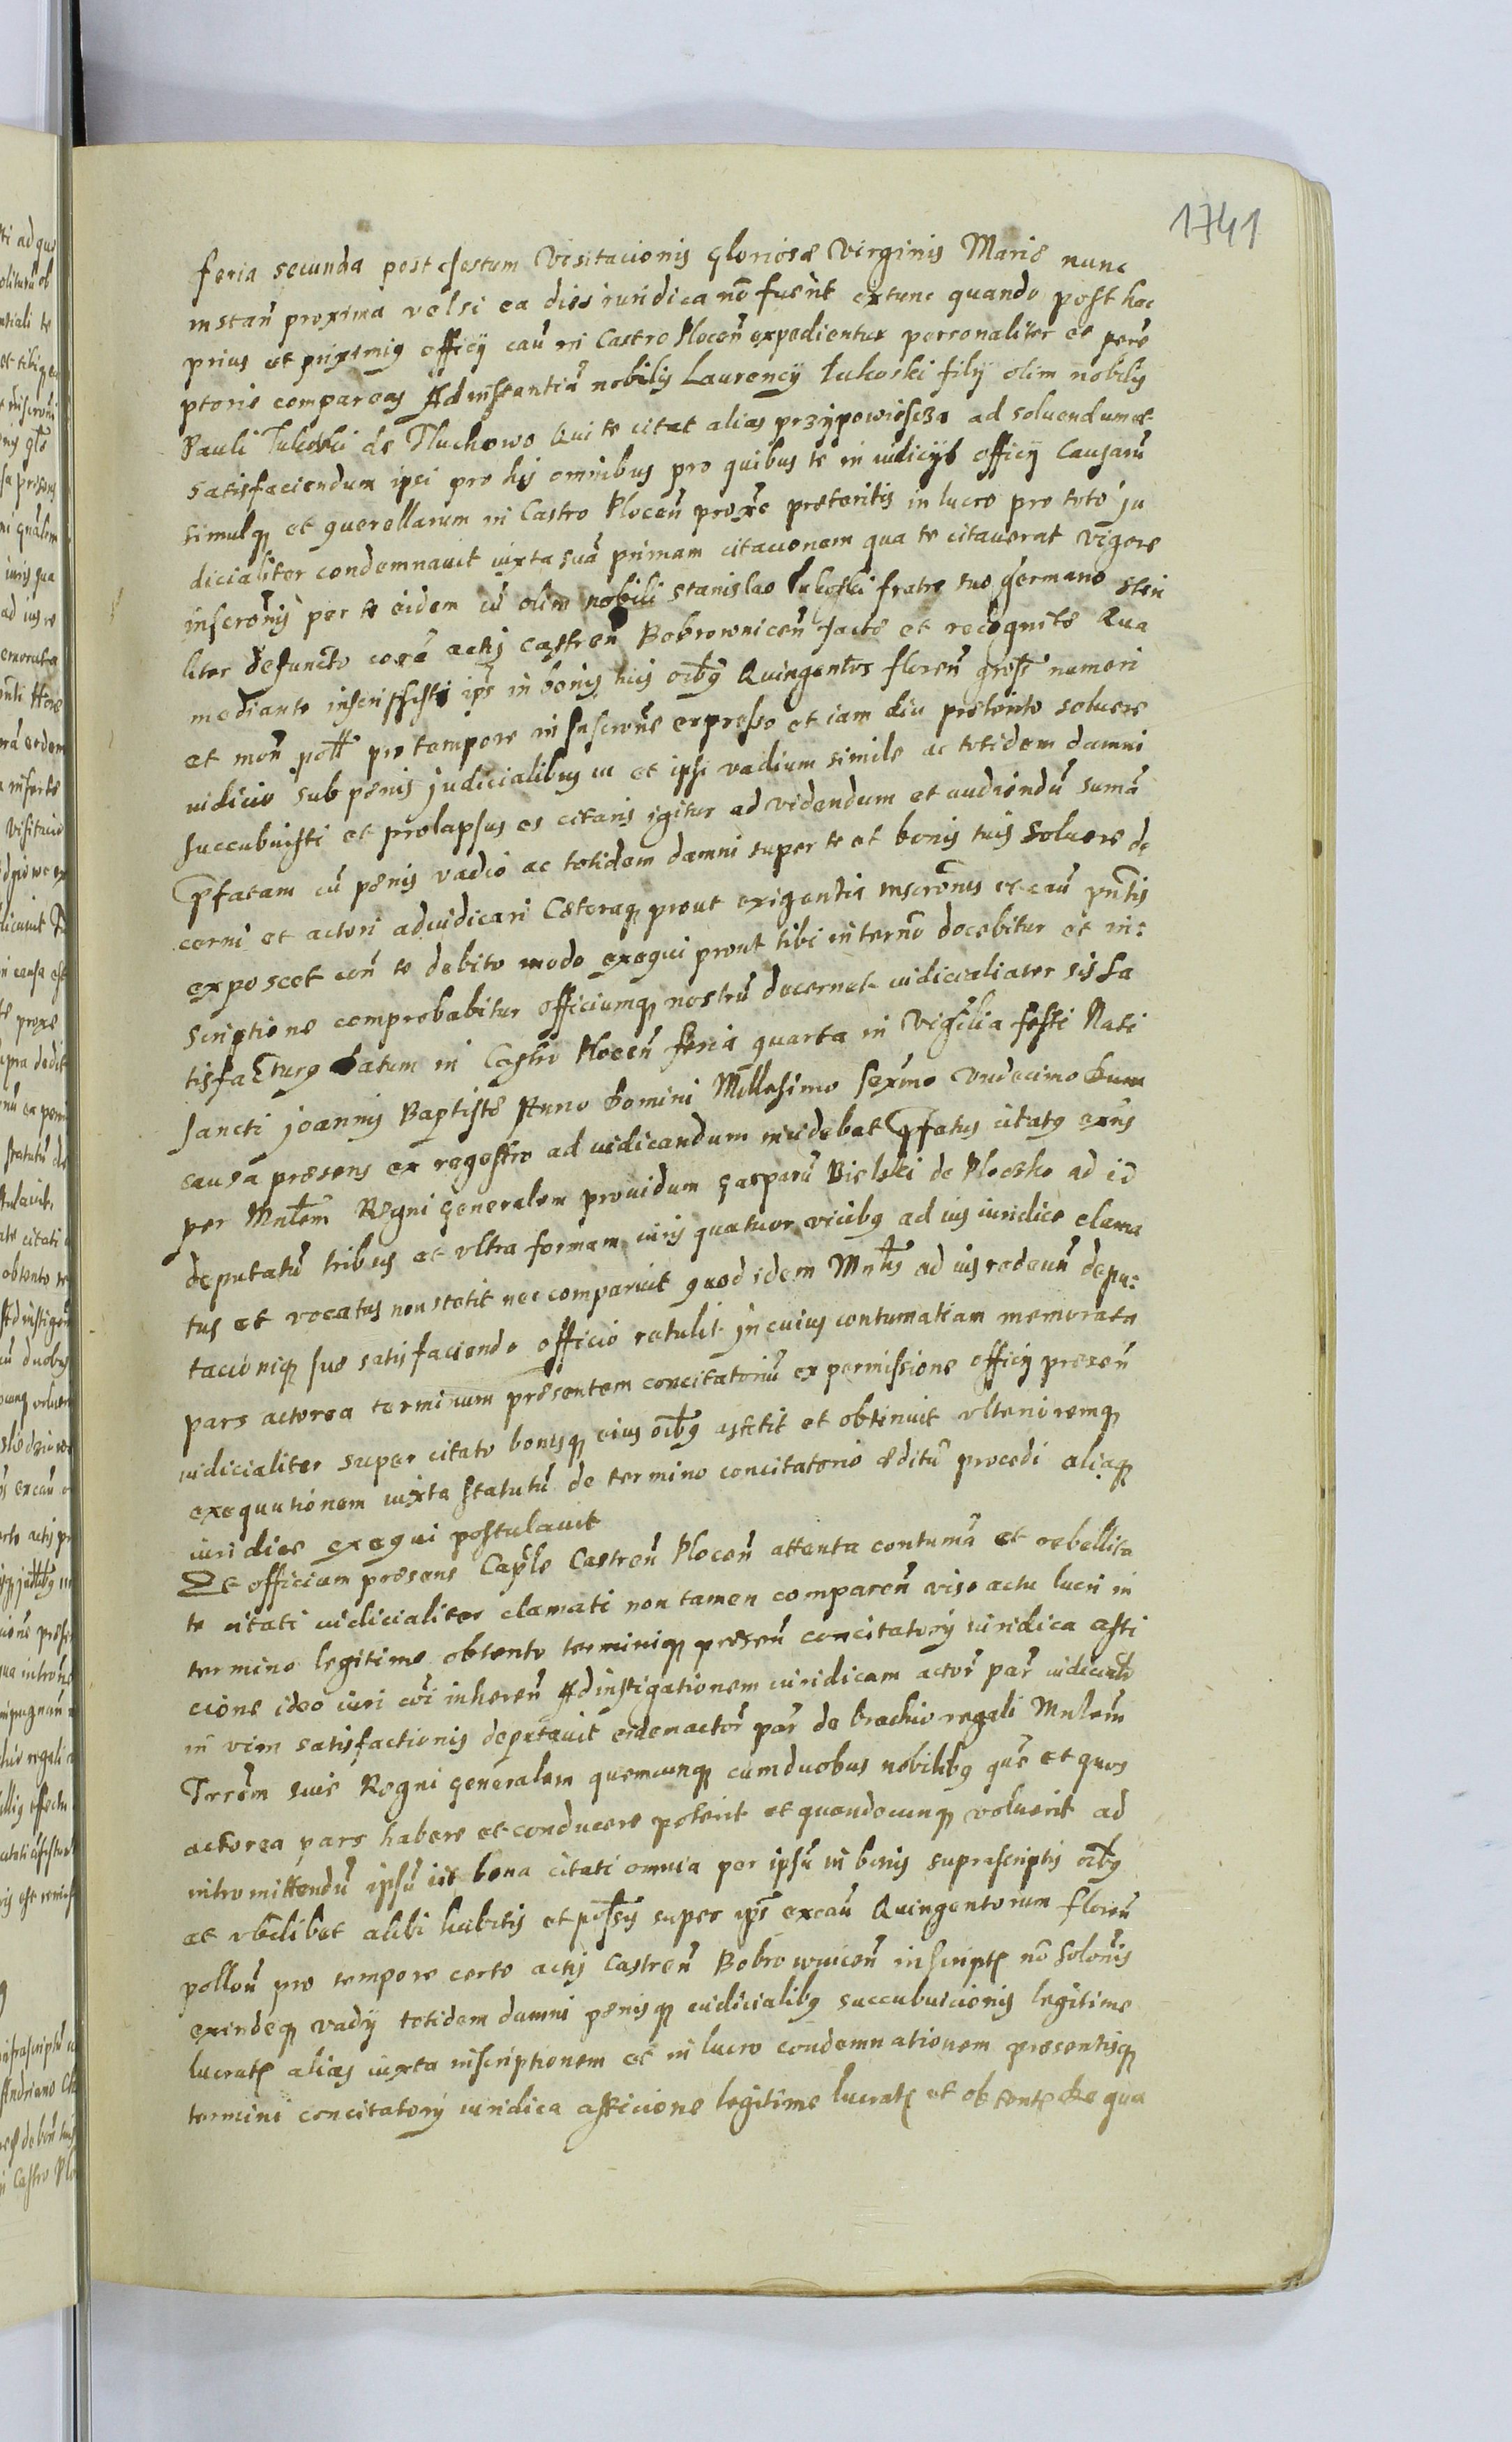 1741
feria secunda post festum Visitacionis Gloriosæ Virginis Mariæ nunc
instan̄ proxima vel si ea dies iuridica nō fuerit extunc quando post hac
prius et proximis officy cau͂ in Castro Plocen̄ expedientur personaliter et perē
ptorie compareas Ad instantiā nobilis Laurency Lukoski fily olim nobilis
Pauli Lukoski de Tluchowo Qui te citat alias przypowiescza ad soluendum et
satisfaciendum ipsi pro his omnibus pro quibus te in iudicys officy Causarū
simulq̨ et querellarum in Castro Plocen̄ proxē preteritis in lucro pro toto ju
dicialiter condemnauit iuxta suā primam citacionem qua te citauerat Vigore
inscrōnis per te eidem cū olim nobili Stanislao Lukoski fratre suo germano steri
liter defuncto corā actis Castren̄ Bobrownicen̄ factæ et recognitæ Qua
mediante inscripsisti ips̄ in bonis tuis oībꝯ Quingentos floren̄ gross̄ numeri
et mon̄ poll̄ pro tempore in Inscrōne expresso et iam diu preterito soluere
iudicio sub pænis judicialibus in et ipsi vadium simile ac totidem damni
succubuisti et prolapsus es citaris igitur ad videndum et audiendū sumā
p̄fatam cū pænis vadio ac totidem damni super te et bonis tuis Soluere de
cerni et actori adiudicari Cæteraq̨ prout exigentia inscrōnis et cau͂ pn̄tis
exposcet con̄ te debito modo exequi prout tibi in termō docebitur et in:
scriptione comprobabitur officiumq̨ nostrū decernet iudicialiater sis sa
tisfacturꝯ Datum in Castro Plocen̄ feria quarta in Vigilia festi Nati
Sancti Joannis Baptistæ Anno Domini Millesimo Sexmo Vndecimo Dum
causa præsens ex regestro ad iudicandum incidebat p̄fatus citatꝯ exn̄s
per Mnlem̄ Regni Generalem prouidum Gasparū Bielski de Plocsko ad id
deputatū tribus et vltra formam iuris quatuor vicibꝯ ad ius iuridice clama
tus et vocatus non stetit nec comparuit quod idem Mnlis̄ ad ius reddeun̄ depu:
tacioniq̨ suæ satisfaciendo officio retulit in cuius contumatiam memorata
pars actorea terminum præsentem concitatoriū ex permissione officy præsen̄
iudicialiter super citato bonisq̨ eius oībꝯ astitit et obtinuit vlterioremq̨
exequutionem iuxta statutū de termino concitatorio æditū procedi aliaq̨
iuridice exequi postulauit
Et officium præsens Caplē Castren̄ Plocen̄ attenta contumā et rebellita
te citati iudicialiter clamati non tamen comparen̄ viso actu lucri in
termino legitime obtento terminiq̨ præsen̄ concitatory iuridica asti
cione ideo iuri cōi inheren̄ Ad instigationem iuridicam actor̄ par̄ iudicialr̄
in vim satisfactionis deputauit eidem actor̄ par̄ de brachio regali Mnlem̄
Trrēm̄ siue Regni Generalem quemcunq̨ cum duobus nobilibꝯ quē et quos
actorea pars habere et conducere poterit et quandocunq̨ voluerit ad
intromittendū ipsū in bona citati omnia per ipsū in bonis suprascriptis oībꝯ
et vbilibet alibi habitis et pos̄sis super ips̄ ex cau͂ Quingentorum floren̄
pollon̄ pro tempore certo actis Castren̄ Bobrownicen̄ inscript̨ nō Solōnis
exindeq̨ vady totidem damni pænisq̨ iudicialibꝯ succubuicionis legitime
lucrat̨ alias iuxta inscriptionem et in lucro condemnationem præsentisq̨
termini concitatory iuridica asticione legitime lucrat̨ et obtent̨ De qua